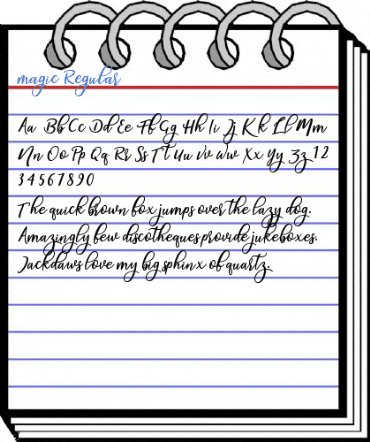 magic Regular
Aa Bb Cc Dd Ee Ff Gg Hh Ii Jj Kk Ll Mm
Nn Oo Pp Qq Rr Ss Tt Uu Vv Ww Xx Yy Zz 1 2
3 4 5 6 7 8 9 0
The quick brown fox jumps over the lazy dog.
Amazingly few discotheques provide jukeboxes.
Jackdaws love my big sphinx of quartz.